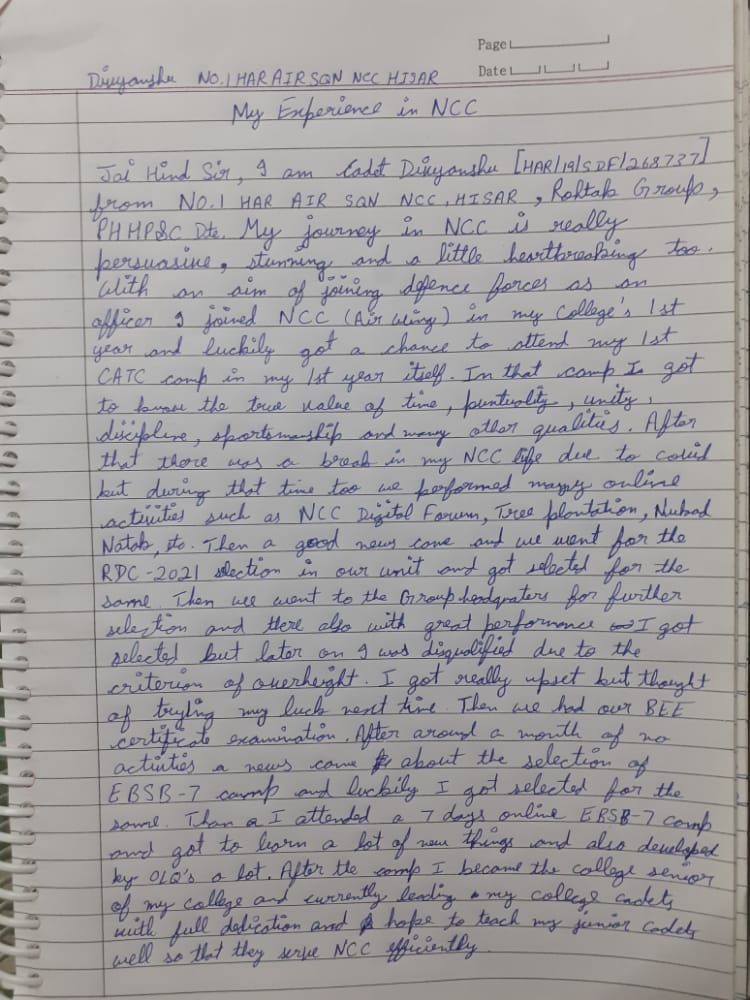 Page
Date
Divyanshu NO.1 HAR AIR SQN NCC HISAR
My Experience in NCC
Jai Hind Sir, I am Cadet Divyanshu [HAR/19/SDF/268737]
from NO.1 HAR AIR SQN NCC, HISAR, Rohtak Group,
PHHP&C Dte. My journey in NCC is really
persuasive, stunning and a little heartbreaking too.
With an aim of joining defence forces as an
officer I joined NCC (Air Wing) in my College's 1st
year and luckily got a chance to attend my 1st
CATC camp in my 1st year itself. In that camp I got
to know the true value of time, puntuality, unity,
discipline, sportsmanship and many other qualities. After
that there was a break in my NCC life due to covid
but during that time too we performed many online
activities such as NCC Digital Forum, Tree plantation, Nukad
Natak, etc. Then a good news came and we went for the
RDC-2021 selection in our unit and got selected for the
same. Then we went to the Group headquaters for further
selection and there also with great performance I got
selected but later on I was disqualified due to the
criterion of overheight. I got really upset but thought
of trying my luck next time. Then we had our BEE
certificate examination. After around a month of no
activities a news came about the selection of
EBSB-7 camp and luckily I got selected for the
same. Than I attended a 7 days online EBSB-7 camp
and got to learn a lot of new things and also developed
by OLQ's a lot. After the camp I became the college senior
of my college and currently leading my college cadets
with full dedication and hope to teach my junior cadets
well so that they serve NCC efficiently.